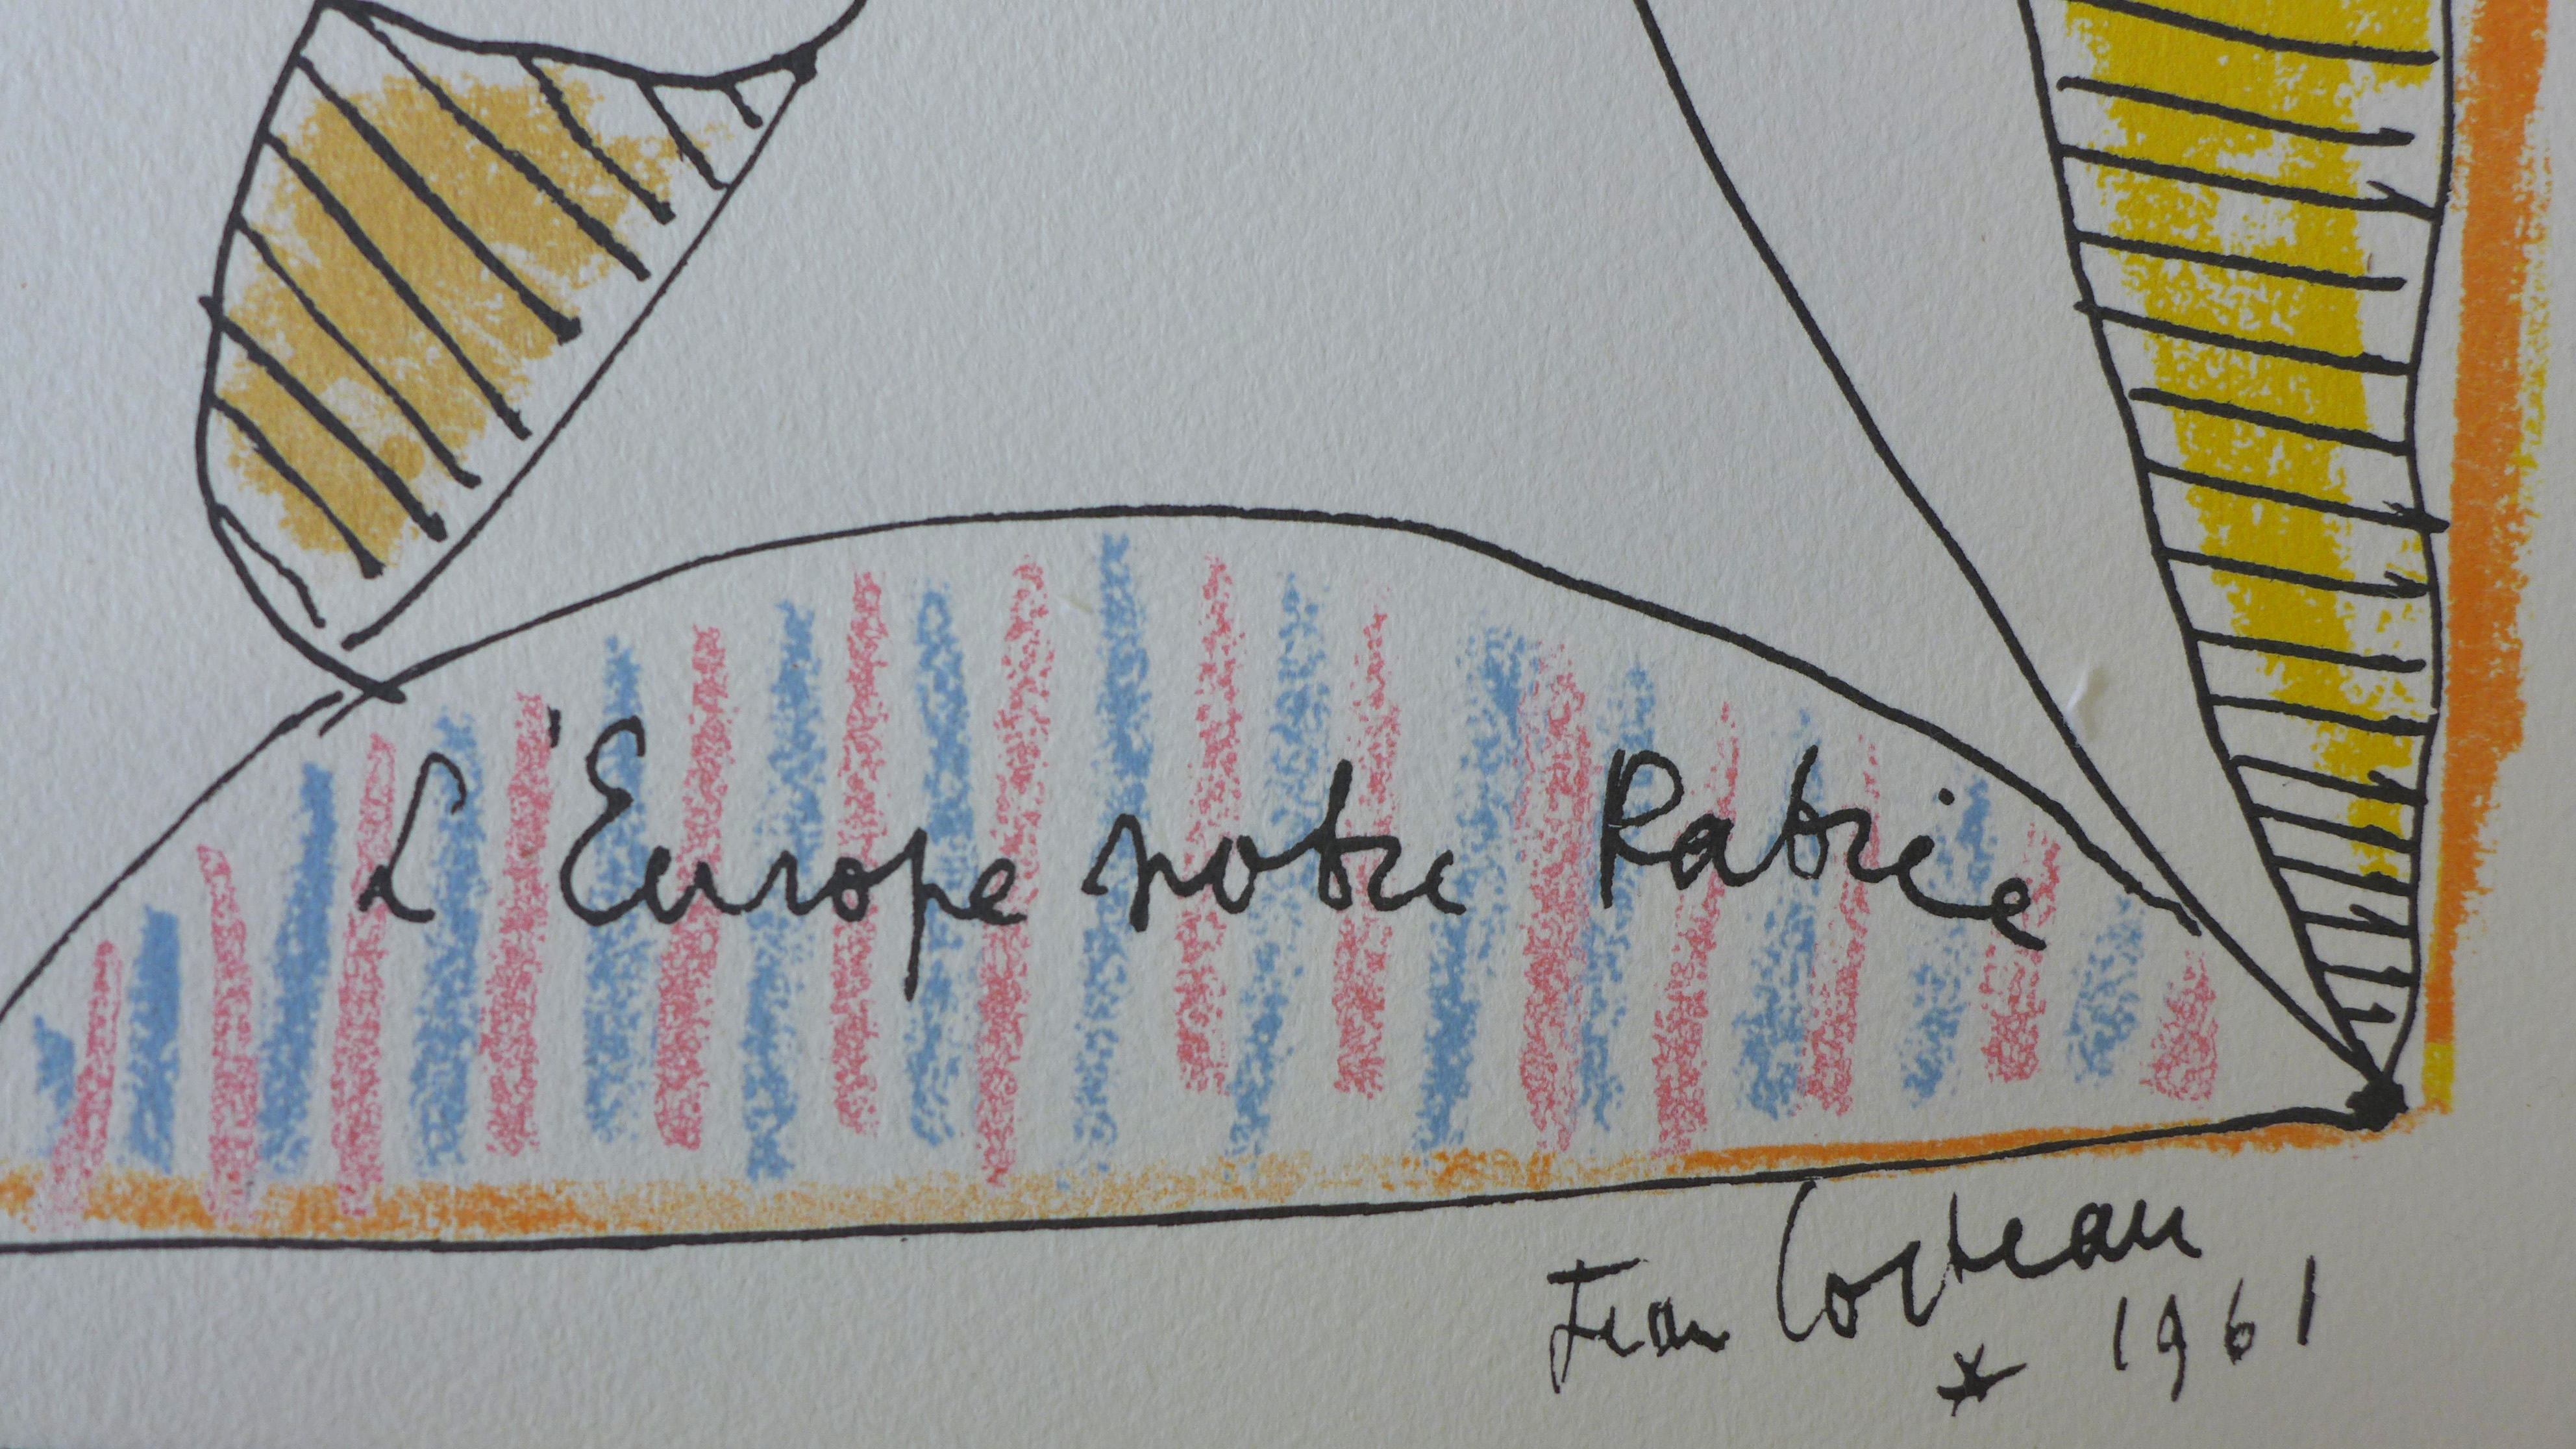 L'Europe notre Patrie
Jean Cocteau
* 1961